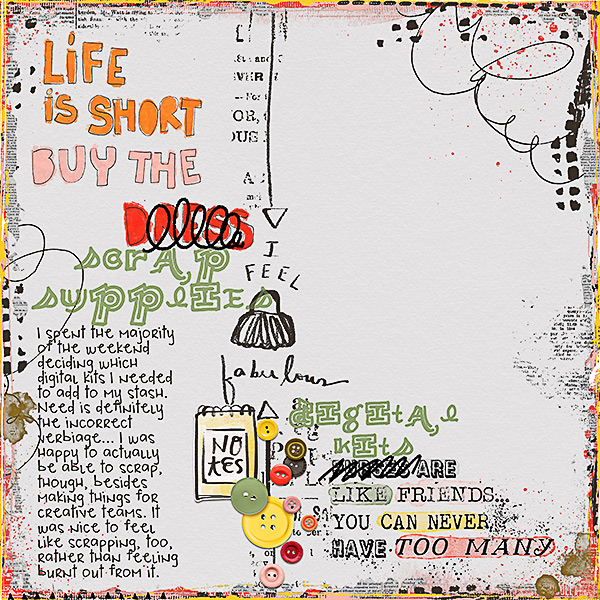 LiFE
iS SHORT
BUY THE
scrap
supplies
I spent the majority
of the weekend
deciding which
digital kits I needed
to add to my stash.
Need is definitely
the incorrect
verbiage... I was
happy to actually
be able to scrap,
though, besides
making things for
creative teams. It
was nice to feel
like scrapping, too,
rather than feeling
burnt out from it.
I
FEEL
fabulous
NO
TES
digital
kits
ARE
LIKE FRIENDS...
YOU CAN NEVER
HAVE TOO MANY